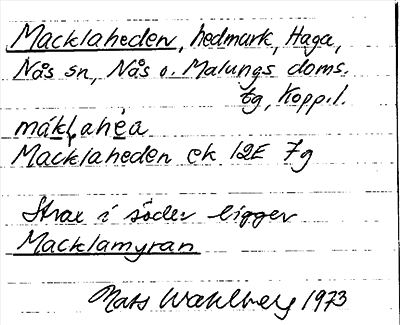 Macklaheden, hedmark, Haga,
Nås sn, Nås o. Malungs doms.
tg, Kopp.l.
máklahéa
Macklaheden ek 12E 7g
Strax i söder ligger
Macklamyran
Mats Wahlberg 1973